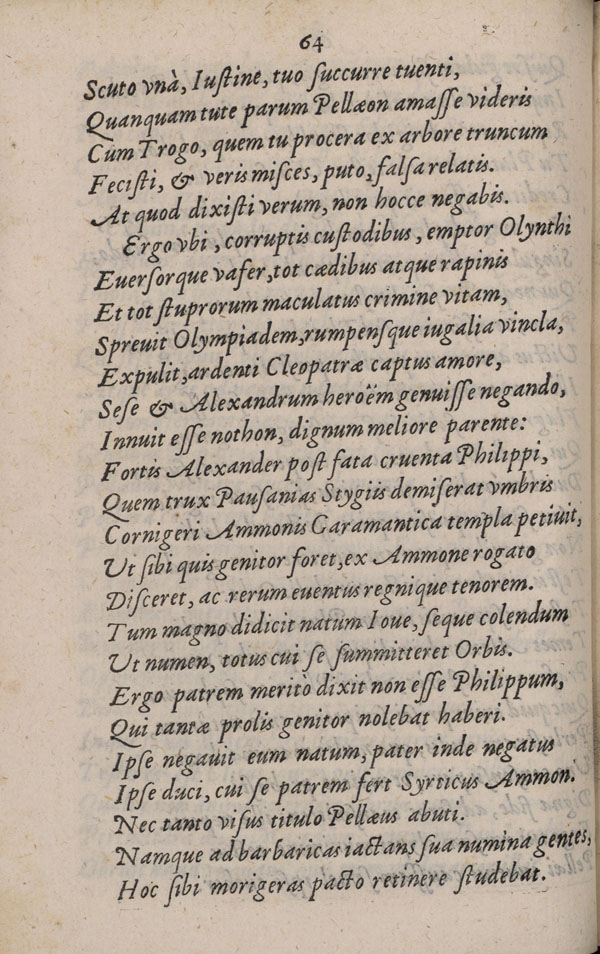 64
Scuto vnà, Iuſtine, tuo ſuccurre tuenti,
Quanquam tute parum Pellæon amaſſe videris
Cùm Trogo, quem tu procera ex arbore truncum
Feciſti, & veris miſces, puto, falſa relatis.
At quod dixiſti verum, non hocce negabis.
Ergo vbi, corruptis cuſtodibus, emptor Olynthi
Euerſorque vafer, tot cædibus atque rapinis
Et tot ſtuprorum maculatus crimine vitam,
Spreuit Olympiadem, rumpenſque iugalia vincla,
Expulit, ardenti Cleopatræ captus amore,
Seſe & Alexandrum heroëm genuiſſe negando,
Innuit eſſe nothon, dignum meliore parente:
Fortis Alexander poſt fata cruenta Philippi,
Quem trux Pauſanias Stygiis demiſerat vmbris
Cornigeri Ammonis Garamantica templa petiuit,
Ut ſibi quis genitor foret, ex Ammone rogato
Diſceret, ac rerum euentus regnique tenorem.
Tum magno didicit natum Ioue, ſeque colendum
Ut numen, totus cui ſe ſummitteret Orbis.
Ergo patrem meritò dixit non eſſe Philippum,
Qui tantæ prolis genitor nolebat haberi.
Ipſe negauit eum natum, pater inde negatus
Ipſe duci, cui ſe patrem fert Syrticus Ammon.
Nec tanto viſus titulo Pellæus abuti.
Namque ad barbaricas iactans ſua numina gentes,
Hoc ſibi morigeras pacto retinere ſtudebat.